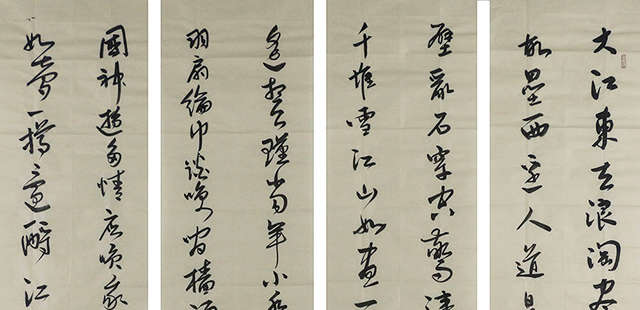 大江東去浪淘盡
故壘西邊人道是
壁亂石穿空驚濤
千堆雪江山如畫一
遙想公瑾當年小喬
羽扇綸巾談咲間檣
國神遊多情應咲我
如夢一樽還酹江